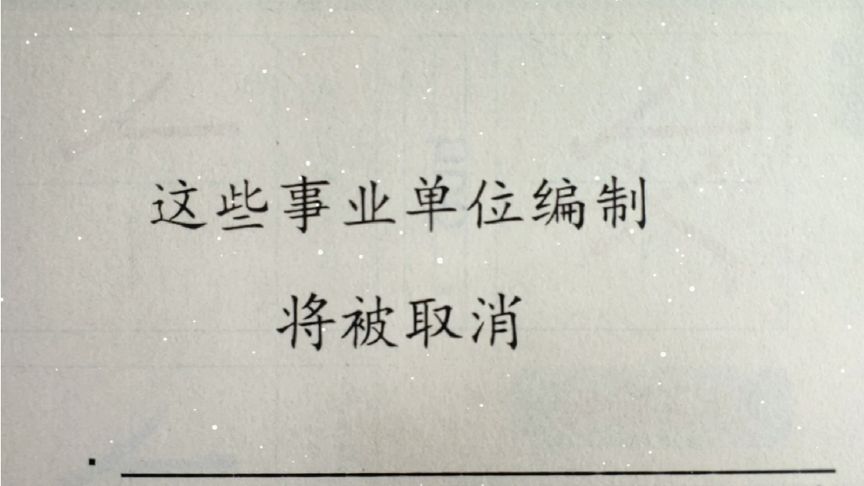 这些事业单位编制
将被取消